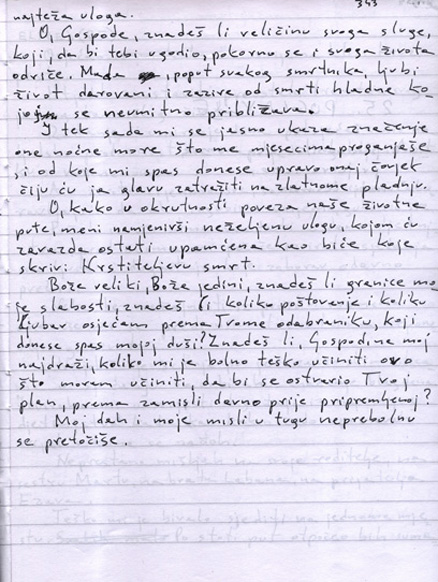 343
najteža uloga.
O, Gospode, znadeš li veličinu svoga sluge,
koji, da bi tebi ugodio, pokorno se i svoga života
odriče. Mada, poput svakog smrtnika, ljubi
život darovani i zazire od smrti hladne ko-
joj se neumitno približava.
I tek sada mi se jasno ukaza značenje
one noćne more što me mjesecima proganjaše
i od koje mi spas donese upravo onaj čovjek
čiju ću ja glavu zatražiti na zlatnome pladnju.
O, kako u okrutnosti poveza naše životne
pute, meni namjenivši neželjenu ulogu, kojom ću
zavazda ostati upamćena kao biće koje
skrivi Krstiteljevu smrt.
Bože veliki, Bože jedini, znadeš li granice mo
je slabosti, znadeš li koliko poštovanje i koliku
ljubav osjećam prema Tvome odabraniku, koji
donese spas mojoj duši? Znadeš li, Gospodine moj
najdraži, koliko mi je bolno teško učiniti ovo
što moram učiniti, da bi se ostvario Tvoj
plan, prema zamisli davno prije pripremljenoj?
Moj dah i moje misli u tugu neprebolnu
se pretočiše.